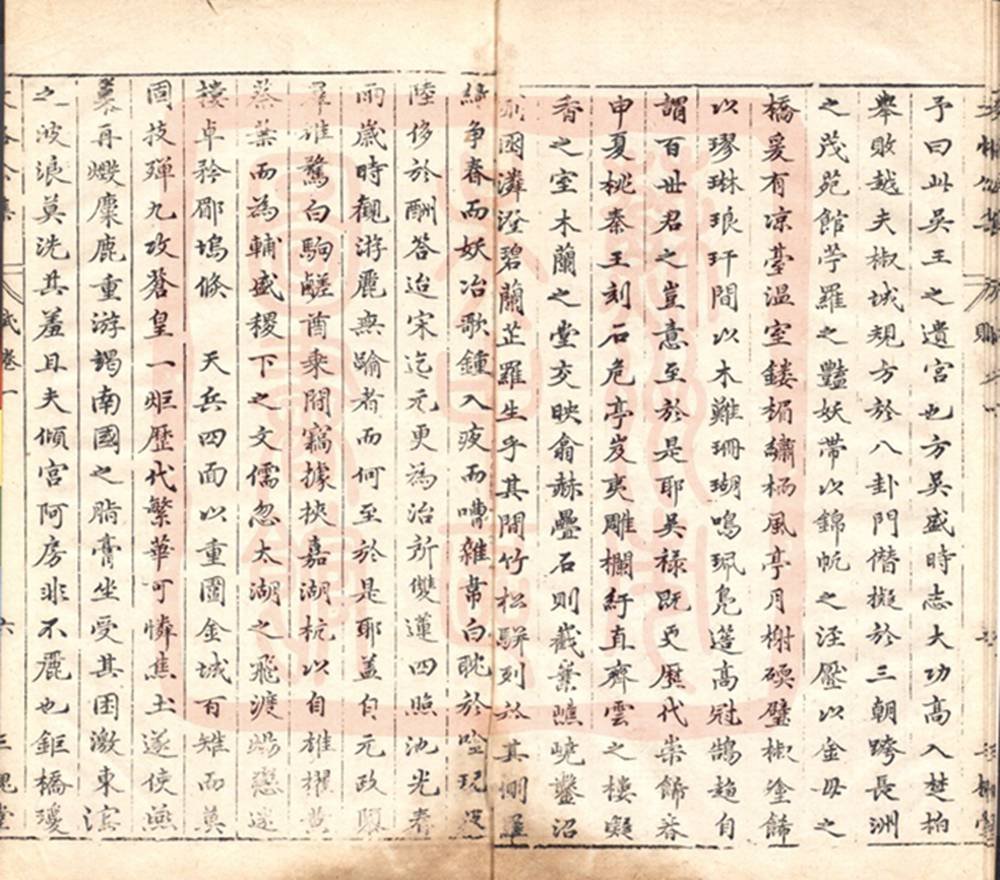 予曰此吳王之遺宮也方吳盛時志大功高入楚柏
舉敗越夫椒城規方於八卦門僭擬於三朝跨長洲
之茂苑館苧羅之豔妖帶以錦帆之涇壓以金母之
橋爰有凉臺温室鏤楣繡栭風亭月榭碝璧椒塗飾
以璆琳琅玕間以木難珊瑚鳴珮鳧蹮高冠鵠趨自
謂百世君之豈意至於是耶吳祿既更歷代崇飾
申夏桃秦王刻石危亭岌夷雕欄紆直齊雲之樓
香之室木蘭之堂交映翕赫疊石則嶻嶪嶕嶢鑿沼
則困潾澄碧蘭芷羅生乎其間竹松駢列於其側
爭春而妖冶歌鍾入夜而嘈雜韋白眈於
陸侈於酬答迨宋迄元更為治所雙蓮四照池光春
雨歲時觀游麗無踰者而何至於是耶蓋自元政
群雄騖白駒鹺酋乘間竊據挾嘉湖杭以自雄擢黃
蔡葉而為輔盛稷下之文儒忽太湖之飛渡戀
摟卓矜郿塢倏 天兵四面以重圍金城百雉而莫
固技殫九攻蒼皇一炬歷代繁華可憐焦土遂使燕
再燬麋鹿重游竭南國之脂膏坐受其困激東
之波浪莫洗其羞且夫傾宮阿房非不麗也鉅橋瓊